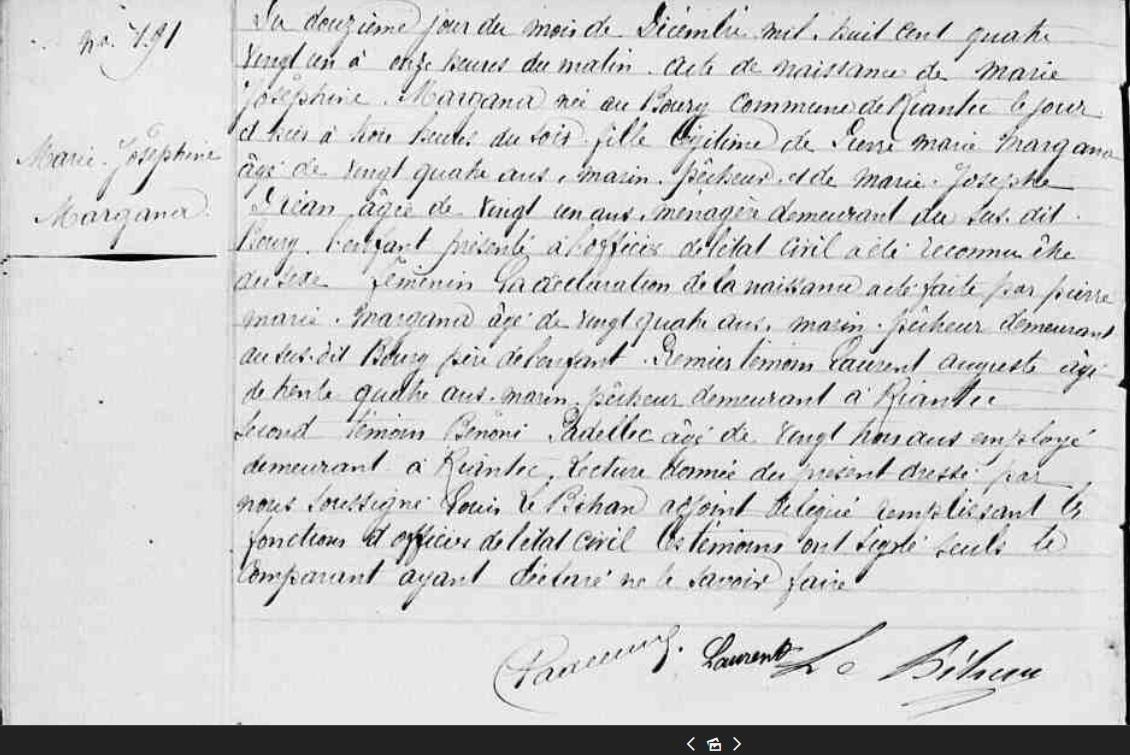 no. 191
Marie Joséphine
Margana
Du douzième jour du mois de Décembre mil huit cent quatre
vingt un à onze heures du matin. Acte de naissance de Marie
Joséphine Margana née au Bourg commune de Riantec le jour
d'hier à trois heures du soir fille légitime de Pierre Marie Margana
âgé de vingt quatre ans, marin pêcheur et de Marie Josèphe
âgée de vingt un ans, menagère demeurant au sus dit
Bourg. l'enfant présenté à l'officier de l'état civil a été reconnu être
du sexe féminin La déclaration de la naissance a été faite par pierre
marie Margana âgé de vingt quatre ans, marin pêcheur demeurant
au sus-dit Bourg père de l'enfant. Premier témoin Laurent auguste âgé
de trente quatre ans marin pêcheur demeurant à Riantec
second témoin Bénoni Padellec âgé de vingt trois ans employé
demeurant à Riantec, Lecture donnée du présent dressé par
nous soussigné Louis Le Bihan adjoint délégué remplissant les
fonctions d'officier de l'état civil les témoins ont signé seuls le
comparant ayant déclaré ne le savoir faire
Laurent Le Bihan